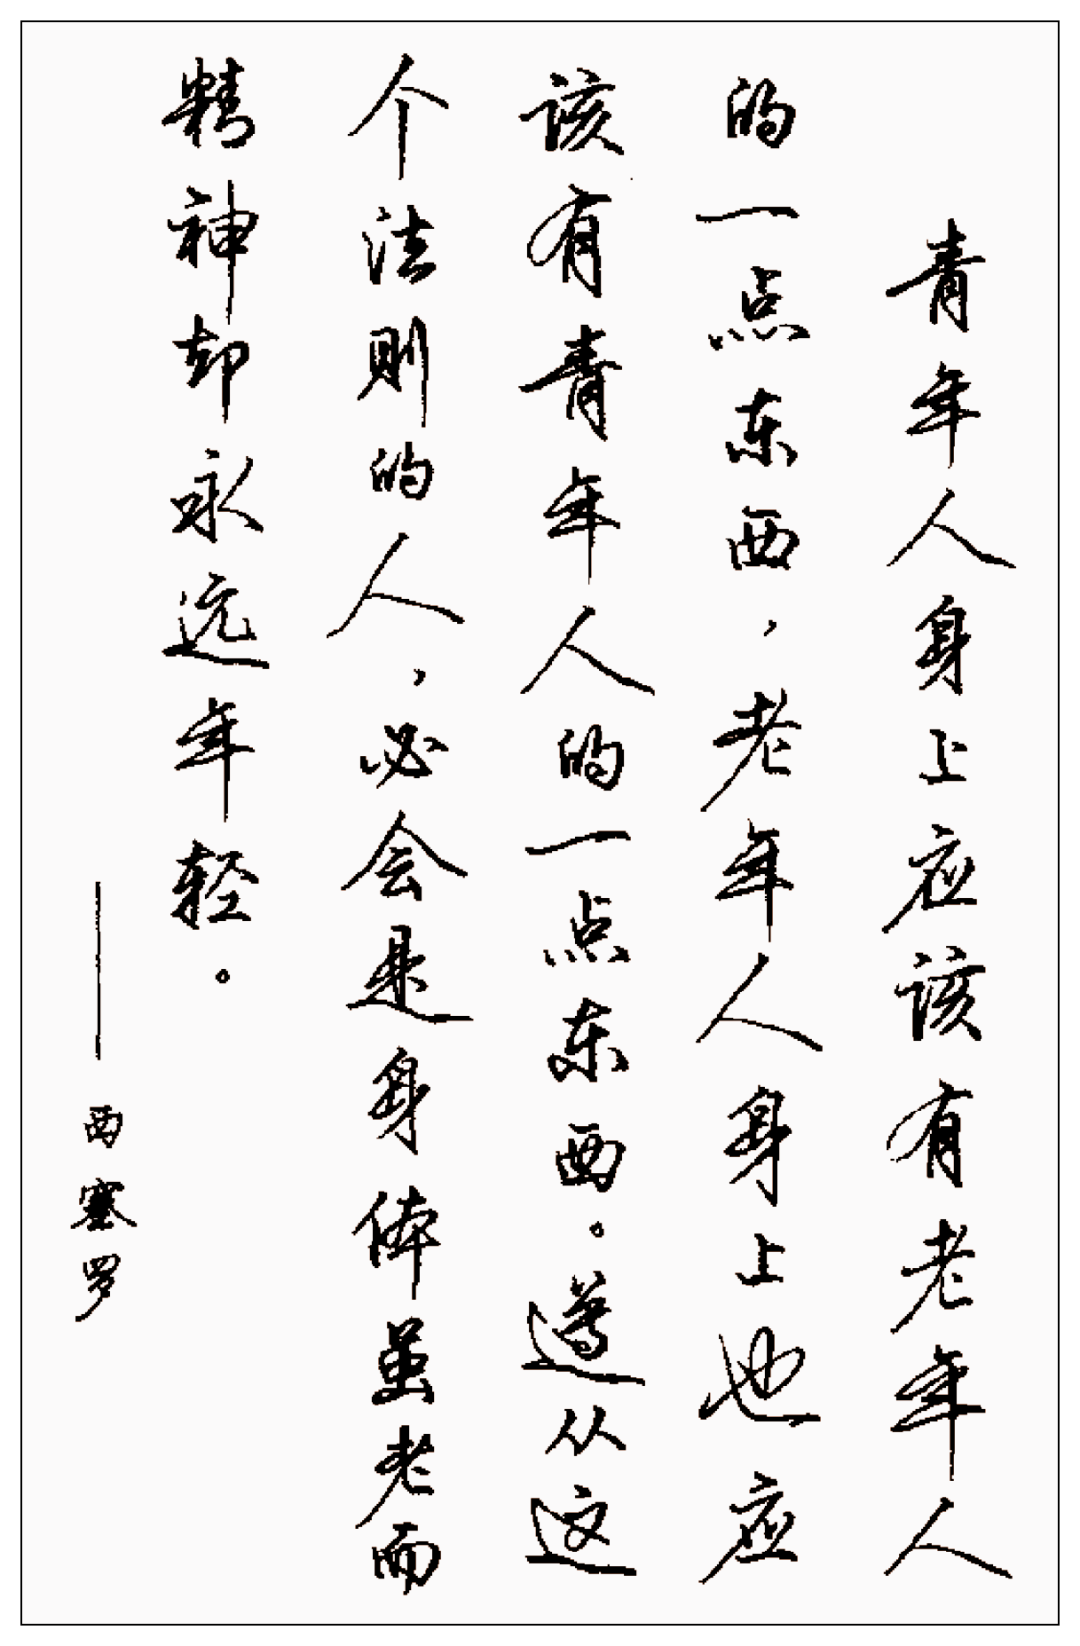 青年人身上应该有老年人
的一点东西，老年人身上也应
该有青年人的一点东西。遵从这
个法则的人，必会是身体虽老而
精神却永远年轻。
——西塞罗